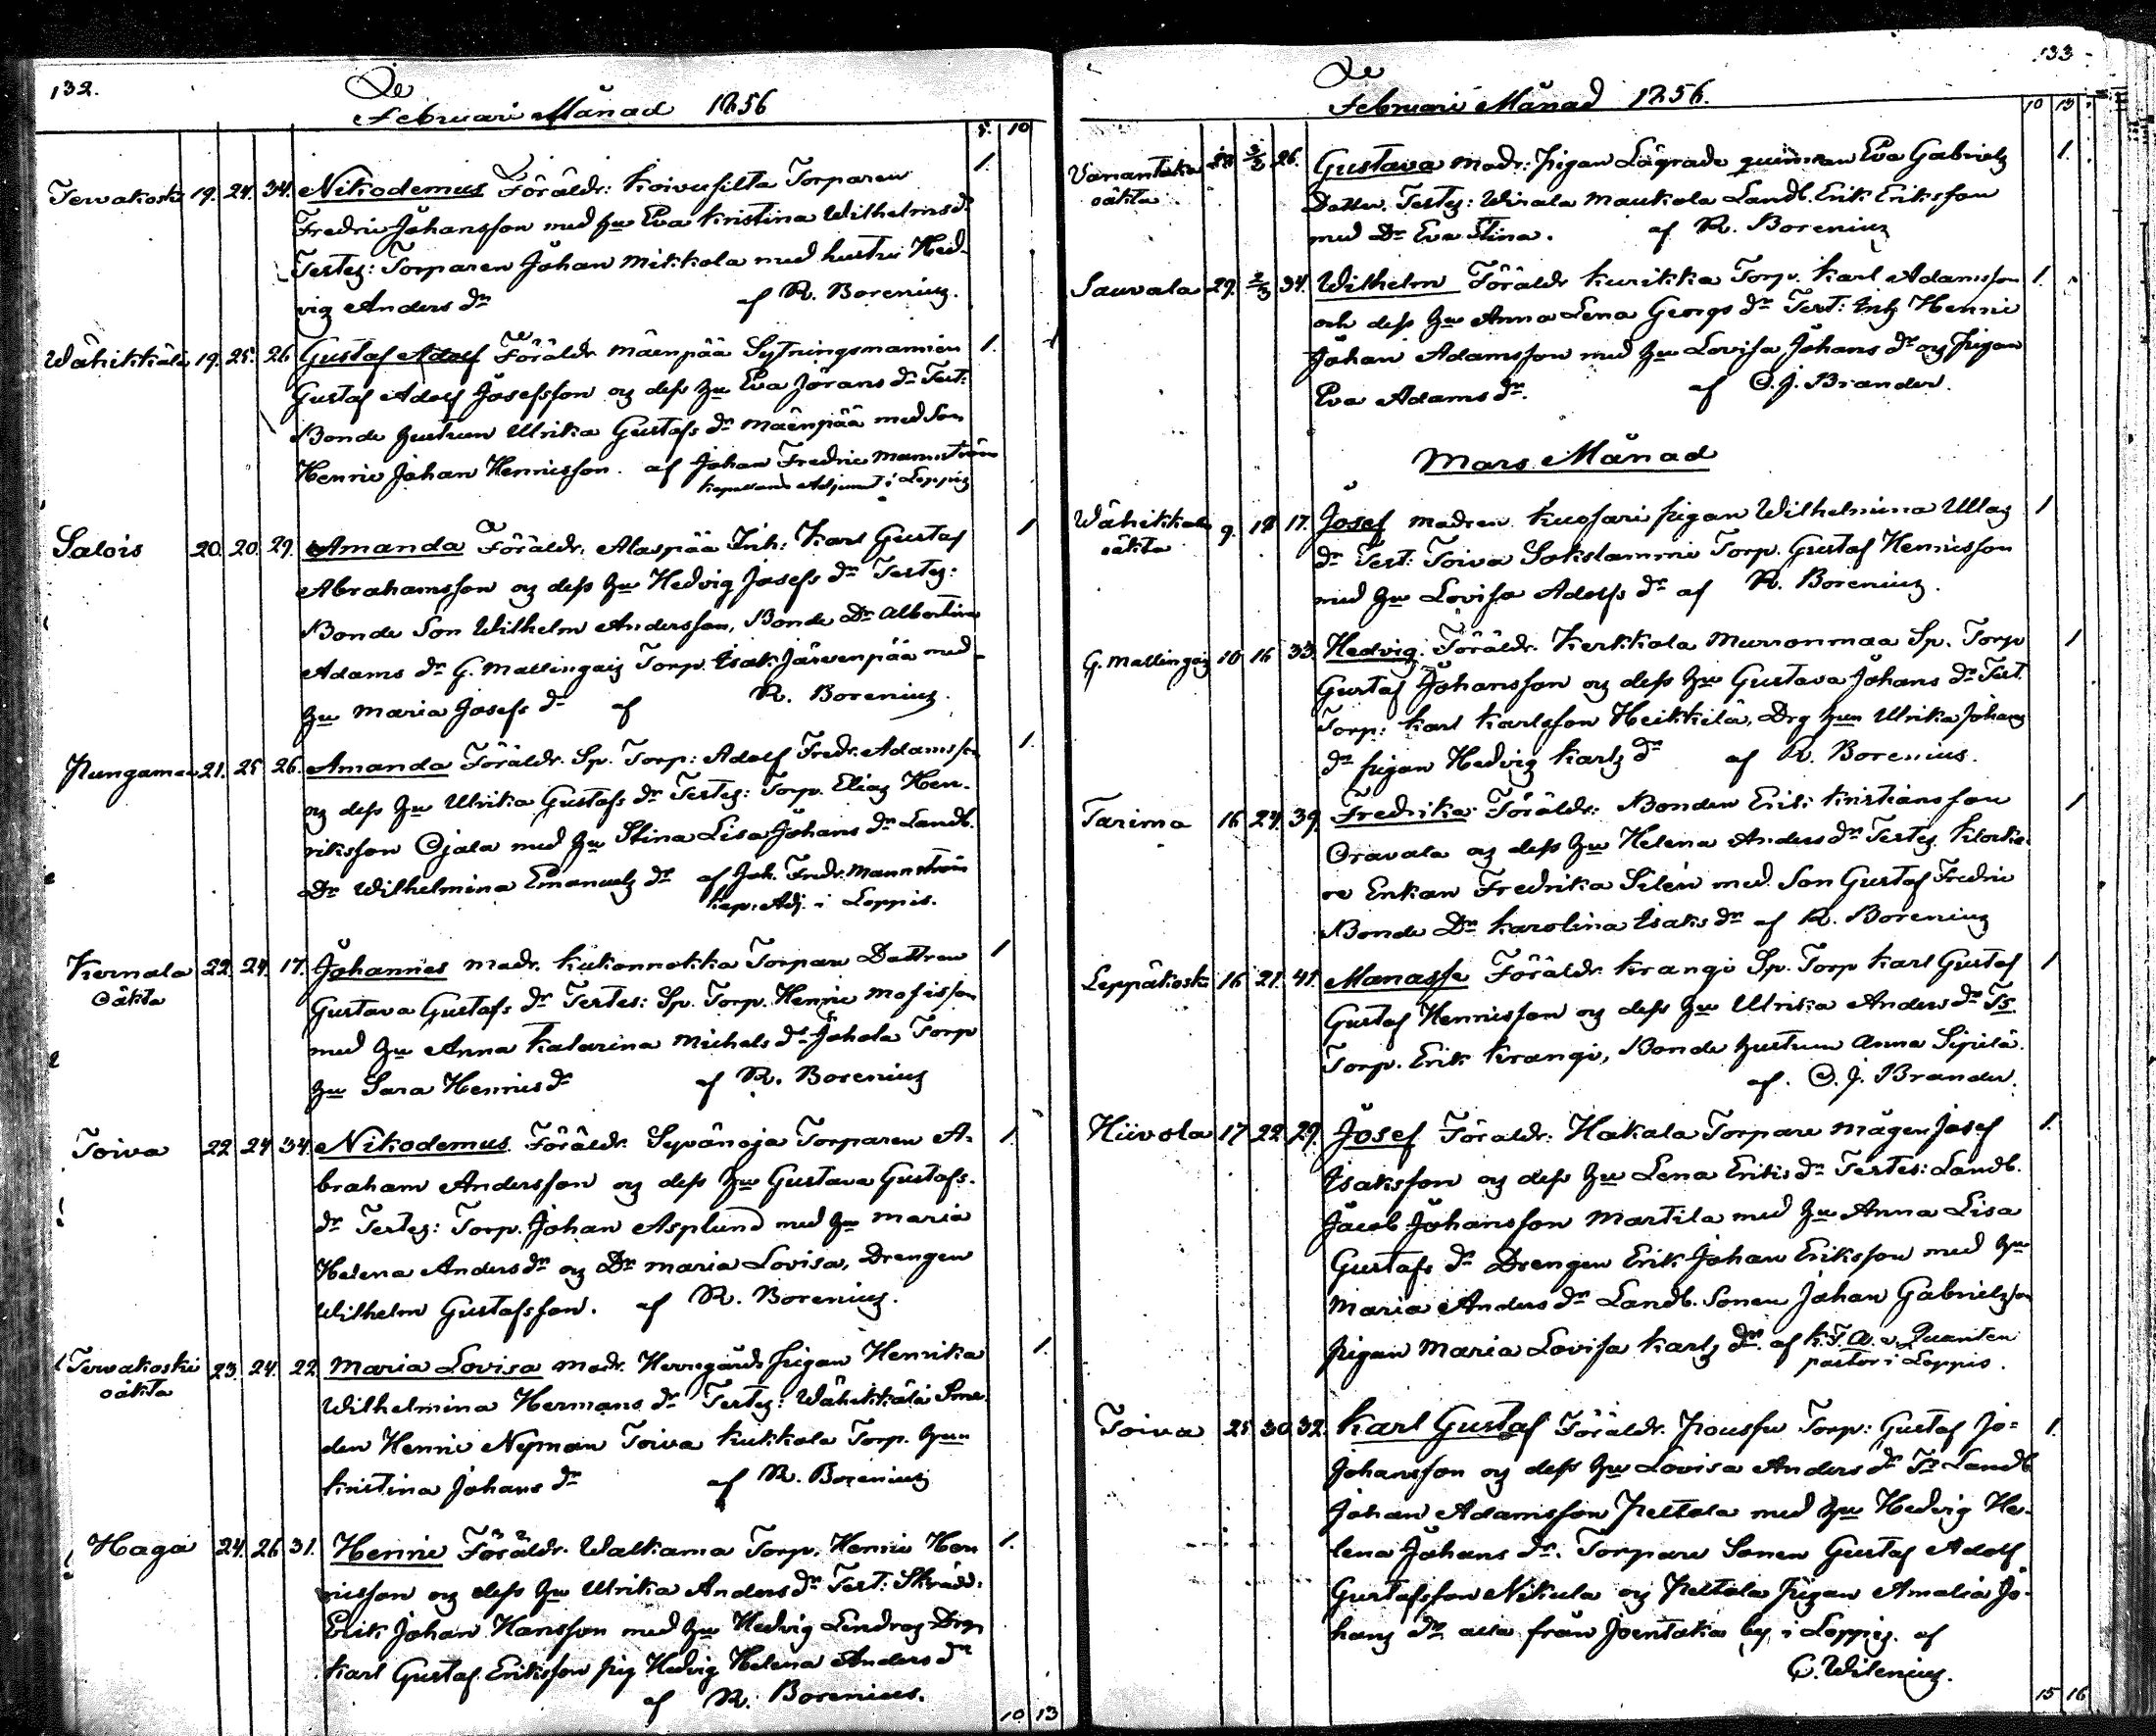 132.
De
Februari Månad 1856
5. 10
Tervakoski 19. 24. 34. Nikodemus Föräldr: Koivusilta Torparen 1.
Fredric Johansson med hu Eva Kristina Wilhelmsdr
Testes: Torparen Johan Mikkola med hustru Hed-
vig Anders dr af R. Borenius.
Wähikkälä 19. 25. 26 Gustaf Adolf Föräldr. Mäenpää Sytningsmannen 1.
Gustaf Adolf Josefsson og dess hu Eva Jörans dr Test:
Bonde hustrun Ulrika Gustafs dr Mäenpää med Son
Henric Johan Henricsson. af Johan Fredric Mannström
Kapellans Adjunct i Loppis
Salois 20. 20. 29. Amanda Föräldr. Alaspää Inh: Karl Gustaf 1
Abrahamsson og dess hu Hedvig Josefs dr Testes:
Bonde Son Wilhelm Andersson, Bonde Dr Albertina
Adams dr G. Mallingais Torp. Isak Järvenpää med
hu Maria Josefs dr af R. Borenius.
Pungamaa 21. 25 26. Amanda Föräldr. Sp. Torp: Adolf Fredr. Adamsson 1.
og dess hu Ulrika Gustafs dr Testes: Torp. Elias Hen-
riksson Ojala med hu Stina Lisa Johans dr Landb.
Dr Wilhelmina Emanuels dr af Joh. Fredr. Mannström
Kap. Adj. i Loppis.
Kernala 22. 24. 17. Johannes modr. Kukonnokka Torpare Dottren 1
Oäkta
Gustava Gustafs dr Testes: Sp. Torp. Henric Mosisson
med hu Anna Katarina Michels dr Johola Torp
hu Sara Henrics dr af R. Borenius
Toiva 22 24 34. Nikodemus. Föräldr. Syvänoja Torparen A- 1.
braham Andersson og dess hu Gustava Gustafs.
dr Testes: Torp. Johan Asplund med hu Maria
Helena Anders dr og Dr Maria Lovisa, Drengen
Wilhelm Gustafsson. af R. Borenius.
Tervakoski 23. 24. 22. Maria Lovisa modr. Herrgårds pigan Henrika 1.
oäkta
Wilhelmina Hermans dr Testes: Wähikkälä Sme-
den Henric Nyman Toiva Kukkola Torp. hun
Kristina Johans dr af R. Borenius
Haga 24. 26. 31. Henric Föräldr. Walkama Torp. Henric Hen 1.
ricsson og dess hu Ulrika Anders dr Test: Skrädd:
Erik Johan Hansson med hu Hedvig Lendroz Dreg
Karl Gustaf Eriksson pig Hedvig Helena Anders dr
af R. Borenius.
10 13
133
De
Februari Månad 1856.
10 13
Vanantaka 28 2/3 26. Gustava modr: pigan Lägrade quinnan Eva Gabriels 1.
oäkta
Dotter. Testes: Wirala Maukola Landb. Erik Eriksson
med Dr Eva Stina. af R. Borenius
Sauvala 29. 2/3 34. Wilhelm Föräldr Kurikka Torp. Karl Adamsson 1.
och dess hu Anna Lena Georgs dr Test: Inh Henric
Johan Adamsson med hu Lovisa Johans dr og pigan
Eva Adams dr. af O. J. Brander.
Mars Månad
Wähikkälä 9. 18 17. Josef modren Kuosari pigan Wilhelmina Ullas 1
oäkta
dr Test: Toiva Sokslammi Torp. Gustaf Henricsson
med hu Lovisa Adolfs dr af R. Borenius.
G. Mallingais 10 16 33. Hedvig. Föräldr. Kerkkola Murronmaa Sp. Torp 1
Gustaf Johansson og dess hu Gustava Johans dr Test.
Torp: Karl Karlsson Heikkilä, Drg hun Ulrika Johans
dr pigan Hedvig Karls dr af R. Borenius.
Tarima 16. 24. 39. Fredrika Föräldr: Bonden Erik Kristiansson 1
Oravala og dess hu Helena Anders dr Testes Klocka-
re Enkan Fredrika Silén med Son Gustaf Fredric
Bonde Dr Karolina Isaks dr af R. Borenius
Leppäkoski 16 21. 41. Manasse Föräldr. Krangi Sp. Torp Karl Gustaf 1
Gustaf Henricsson og dess hu Ulrika Anders dr Ts.
Torp. Erik Krangi, Bonde hustrun Anna Sipilä.
af. O. J. Brander.
Hiivola 17 22. 29. Josef Föräldr: Hakala Torpare mågen Josef 1.
Isaksson og dess hu Lena Eriks dr Testes: Landb.
Jacob Johansson Martila med hu Anna Lisa
Gustafs dr Drengen Erik Johan Eriksson med hu
Maria Anders dr Landb. Sonen Johan Gabrielsson
pigan Maria Lovisa Karls dr. af K. F. A. v. Quanten
pastor i Loppis.
Toiva 25 30. 32. Karl Gustaf Föräldr. Poussu Torp: Gustaf Jo- 1.
Johansson og dess hu Lovisa Anders dr Ts Landb
Johan Adamsson Peltola med hu Hedvig He-
lena Johans dr. Torpare Sonen Gustaf Adolf
Gustafsson Nikula og Peltola pigan Amalia Jo-
hans dr alla från Joentaka by i Loppis. af
C. Wilenius.
15 16